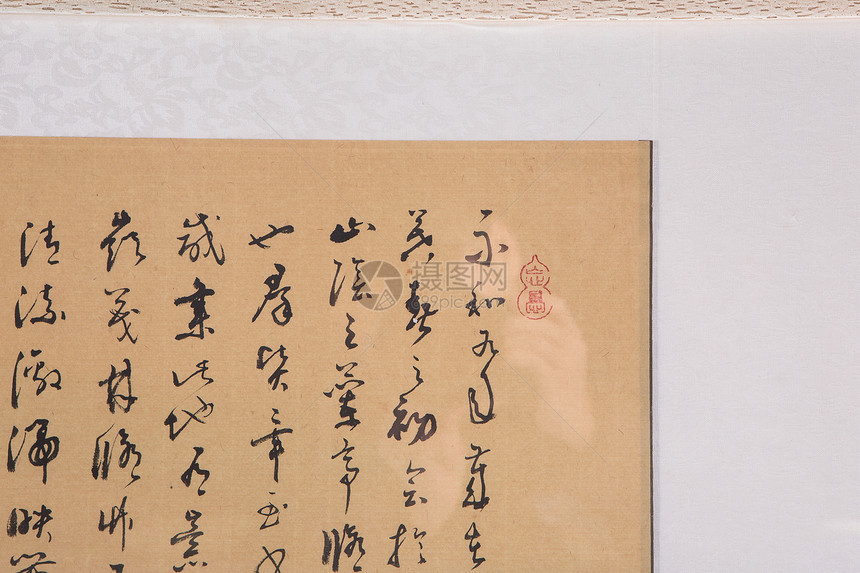 永和九年歲在
暮春之初會於
山陰之蘭亭脩
也群賢畢至少
咸集此地有崇
嶺茂林脩竹又
清流激湍映帶
摄图网
699pic.com